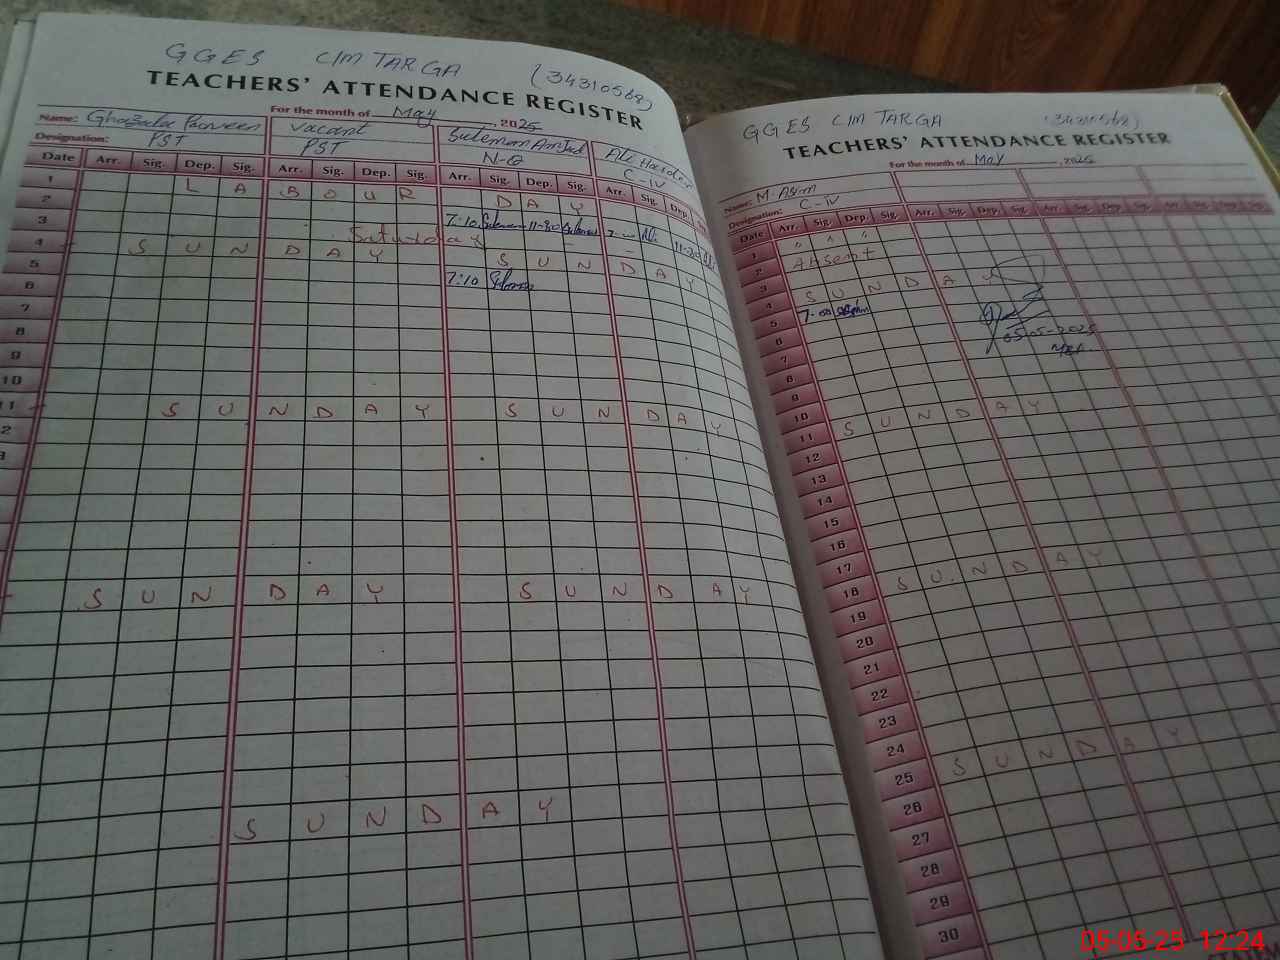 GGES C/M TARGA (34310568)
TEACHERS' ATTENDANCE REGISTER
For the month of May, 2025
Name: Ghazala Parveen Vacant Suleman Amjad Ali Haider
Designation: PST PST N-Q C-IV
Date Arr. Sig. Dep. Sig. Arr. Sig. Dep. Sig. Arr. Sig. Dep. Sig. Arr. Sig. Dep.
1 L A B O U R D A Y
2
3 7:10 Suleman 11-30 Ali 11-30
Saturday
4 S U N D A Y S U N D A Y
5 7:10
6
7
8
9
10
11 S U N D A Y S U N D A Y
S U N D A Y S U N D A Y
S U N D A Y
GGES C/M TARGA (34310568)
TEACHERS' ATTENDANCE REGISTER
For the month of May, 2025
Name: M. Asim
Designation: C-IV
Date Arr. Sig. Dep. Sig. Arr. Sig. Dep. Sig. Arr. Sig. Dep. Sig. Arr. Sig. Dep. Sig.
1 " " "
2 Absent
3
4 S U N D A Y
5 7-00
05-05-2025
6
7
8
9
10
11 S U N D A Y
12
13
14
15
16
17
18 S U N D A Y
19
20
21
22
23
24
25 S U N D A Y
26
27
28
29
30
05-05-25 12:24